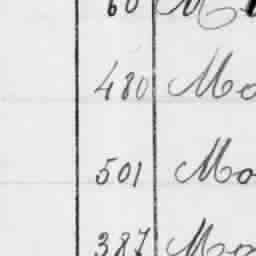 60 M
480 Mo
501 Mo
387 Mo